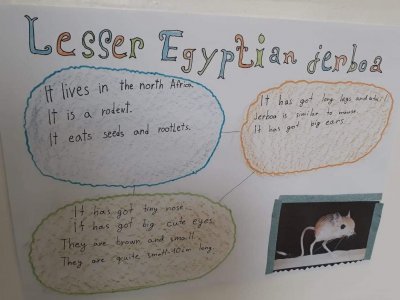 Lesser Egyptian jerboa
It lives in the north Africa.
It is a rodent.
It eats seeds and rootlets.
It has got long legs and tail.
Jerboa is similar to mouse.
It has got big ears.
It has got tiny nose.
It has got big cute eyes.
They are brown and small.
They are quite small-10cm long.